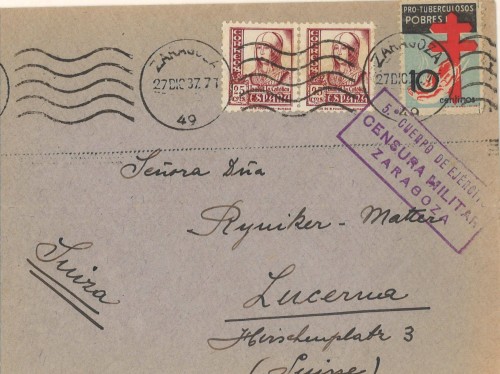 PRO-TUBERCULOSOS
POBRES
10
centimos
ZARAGOZA
27 DIC 37.7T
49
ZARAGOZA
27 DIC
49
25
CTS
ESPAÑA
25
CTS
ESPAÑA
5.º CUERPO DE EJÉRCITO
CENSURA MILITAR
ZARAGOZA
Señora Dña
Ryniker - Matter
Suiza
Lucerna
Hirschenplatz 3
(Suisse)